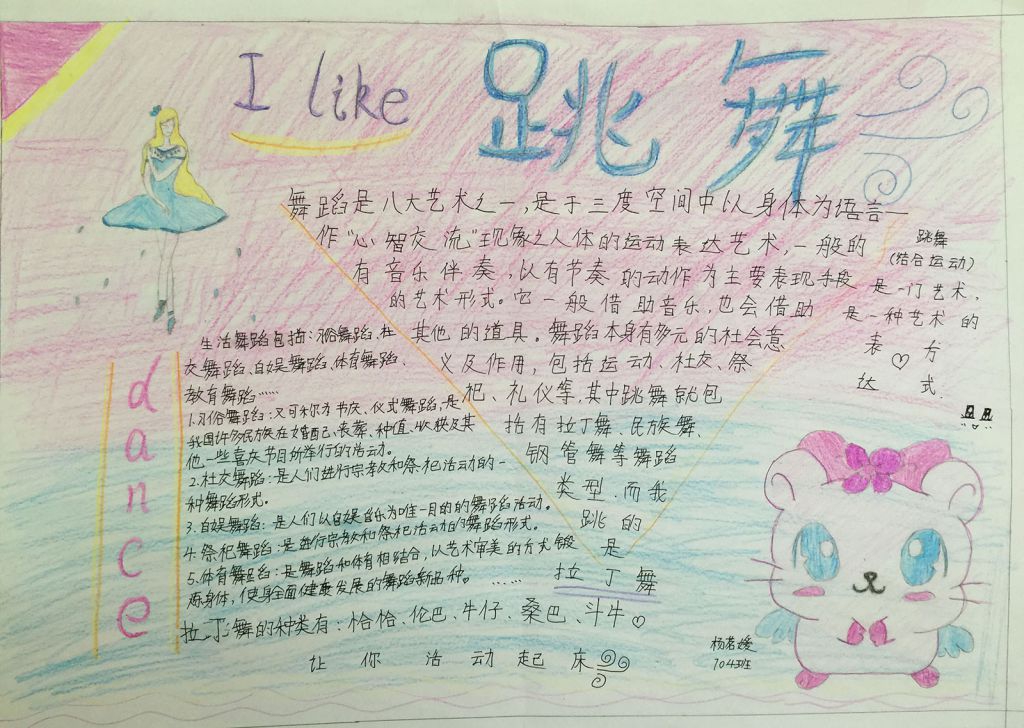 I like 跳舞
舞蹈是八大艺术之一,是于三度空间中以身体为语言
作“心智交流”现象之人体的运动表达艺术,一般的
有音乐伴奏,以有节奏的动作为主要表现手段
的艺术形式。它一般借助音乐,也会借助
其他的道具。舞蹈本身有多元的社会意
义及作用,包括运动、社交、祭
祀、礼仪等,其中跳舞就包
括有拉丁舞、民族舞、
钢管舞等舞蹈
类型,而我
跳的
是
拉丁舞
跳舞
(结合运动)
是一门艺术,
是一种艺术的
表♡方
达 式.
dance
生活舞蹈包括:习俗舞蹈、社
交舞蹈、自娱舞蹈、体育舞蹈、
教育舞蹈……
1.习俗舞蹈:又可称为节庆、仪式舞蹈,是
我国许多民族在婚配、丧葬、种植、收获及其
他一些喜庆节日所举行的活动。
2.社交舞蹈:是人们进行宗教和祭祀活动的一
种舞蹈形式。
3.自娱舞蹈:是人们以自娱音乐为唯一目的的舞蹈活动。
4.祭祀舞蹈:是进行宗教和祭祀活动的舞蹈形式。
5.体育舞蹈:是舞蹈和体育相结合,以艺术审美的方式锻
炼身体,使身全面健康发展的舞蹈新品种。……
拉丁舞的种类有:恰恰、伦巴、牛仔、桑巴、斗牛♡
让你活动起床
704班